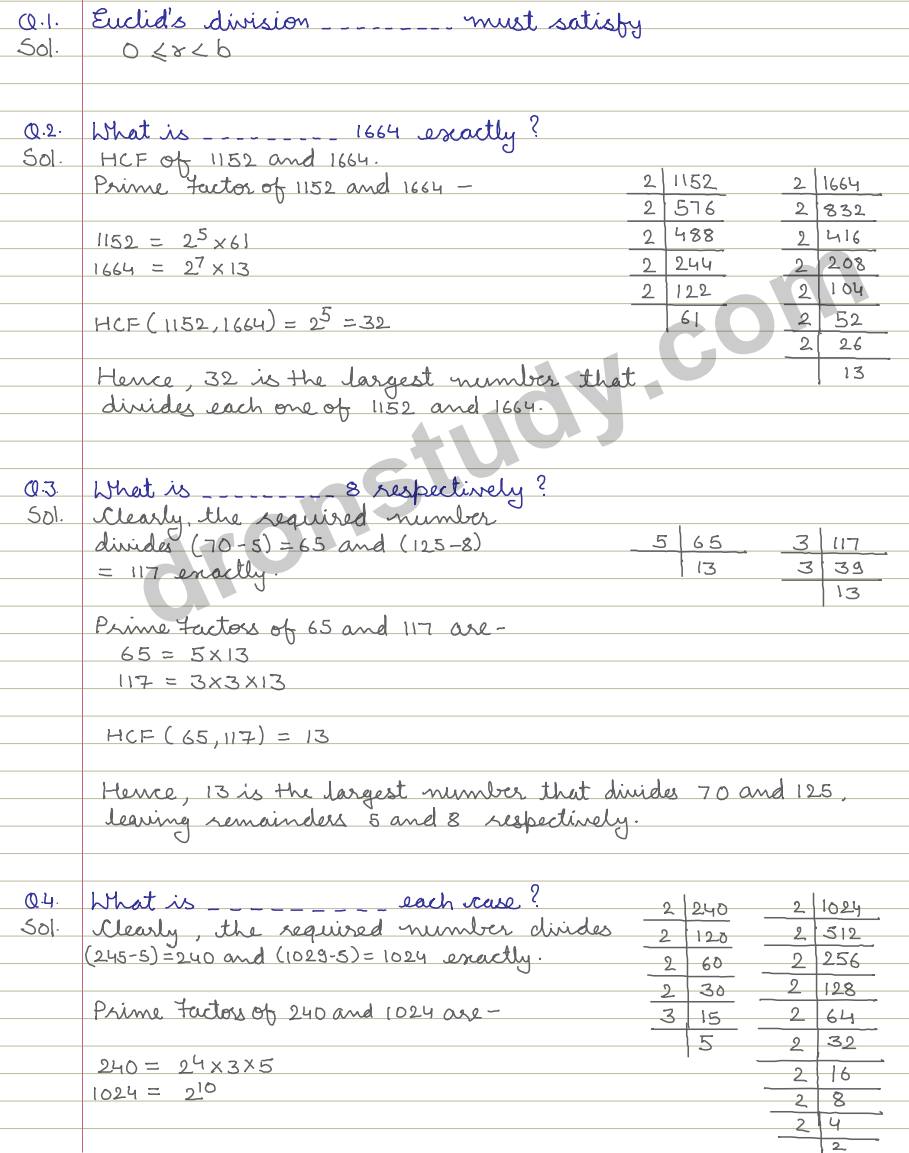 Q.1. Euclid's division _ _ _ _ _ _ _ _ _ must satisfy
Sol. 0 ⩽ r < b
Q.2. What is _ _ _ _ _ _ _ _ _ 1664 exactly?
Sol. HCF of 1152 and 1664.
Prime Factor of 1152 and 1664 –
2 | 1152
2 | 576
2 | 488
2 | 244
2 | 122
61
2 | 1664
2 | 832
2 | 416
2 | 208
2 | 104
2 | 52
2 | 26
13
1152 = 2⁵ × 61
1664 = 2⁷ × 13
HCF (1152, 1664) = 2⁵ = 32
Hence, 32 is the largest number that
divides each one of 1152 and 1664.
Q.3. What is _ _ _ _ _ _ _ _ _ 8 respectively?
Sol. Clearly, the required number
divides (70-5) = 65 and (125-8)
= 117 exactly.
5 | 65
13
3 | 117
3 | 39
13
Prime Factors of 65 and 117 are –
65 = 5 × 13
117 = 3 × 3 × 13
HCF (65, 117) = 13
Hence, 13 is the largest number that divides 70 and 125,
leaving remainders 5 and 8 respectively.
Q.4. What is _ _ _ _ _ _ _ _ _ each case?
Sol. Clearly, the required number divides
(245-5) = 240 and (1029-5) = 1024 exactly.
2 | 240
2 | 120
2 | 60
2 | 30
3 | 15
5
2 | 1024
2 | 512
2 | 256
2 | 128
2 | 64
2 | 32
2 | 16
2 | 8
2 | 4
2
Prime Factors of 240 and 1024 are –
240 = 2⁴ × 3 × 5
1024 = 2¹⁰
dronstudy.com